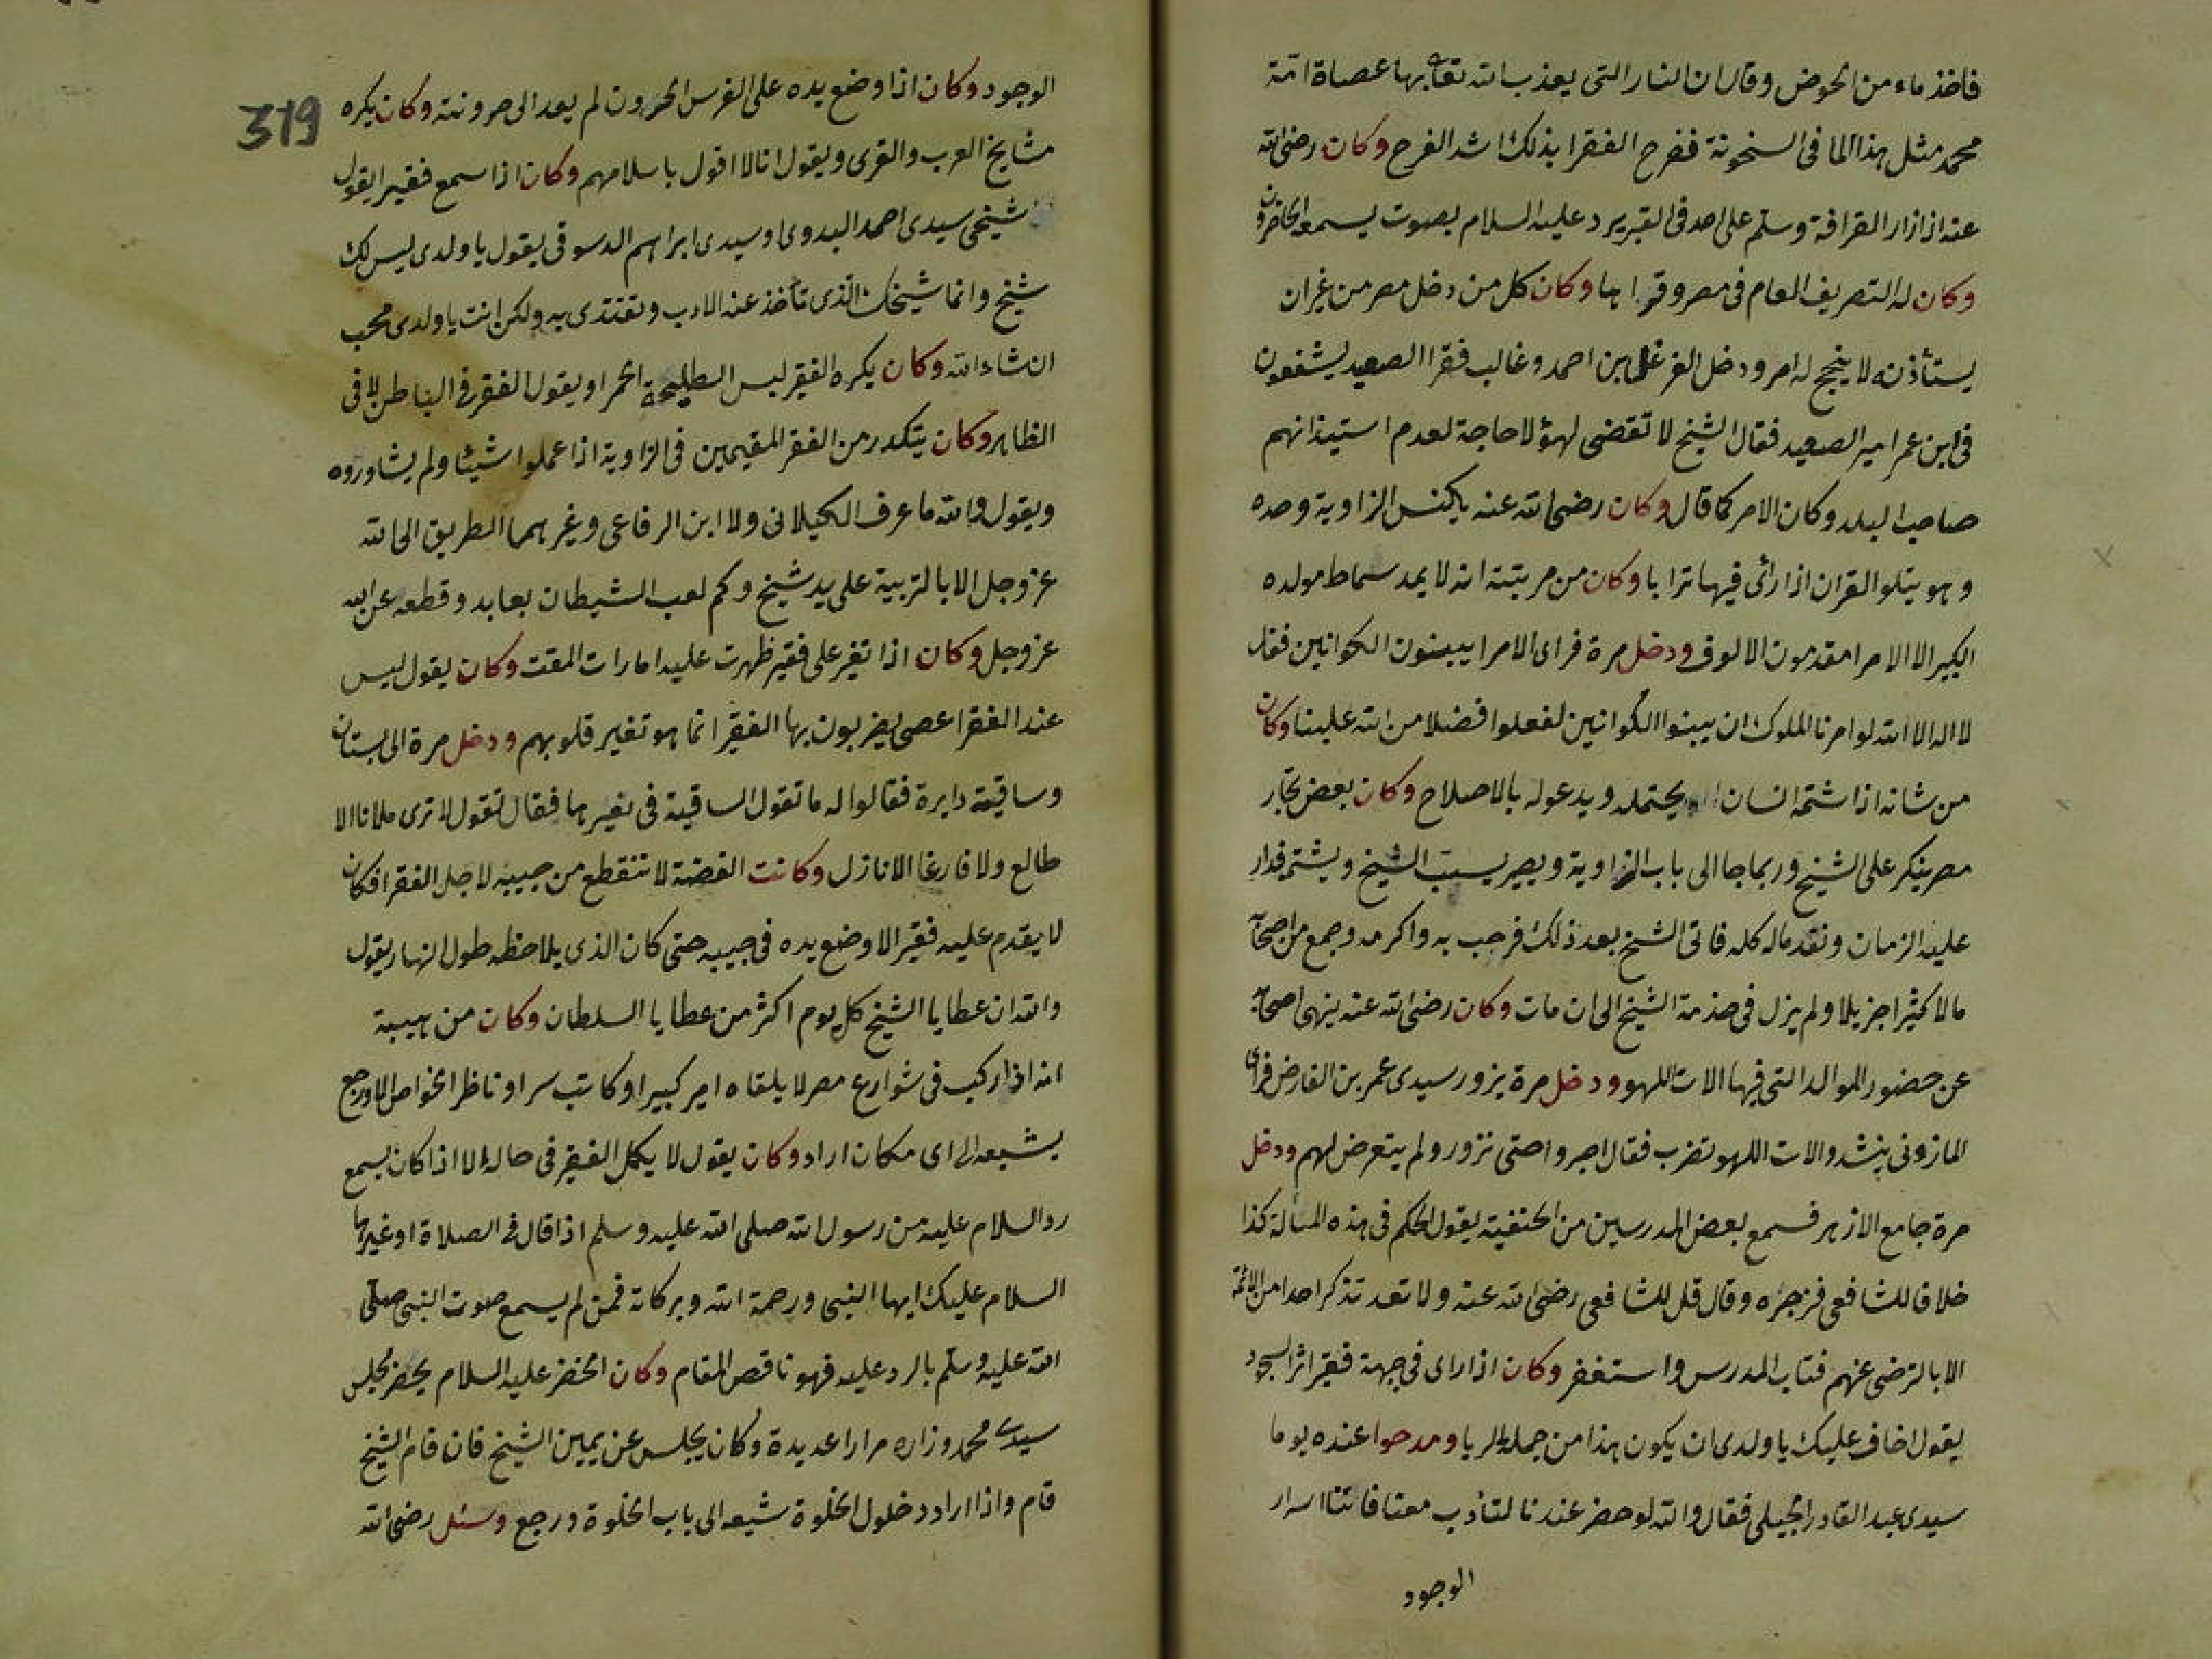 فاخذ ماء من الحوض وقال ان النار التى يعذب الله تعالى بها عصاة امة
محمد مثل هذا الما فى السخونة ففرح الفقرا بذلك اشد الفرح وكان رضى الله
عنه اذا زار القرافة وسلم على احد فى القبر يرد عليه السلام بصوت يسمعه الحاضرون
وكان له التصريف العام فى مصر وقراها وكان كل من دخل مصر من غير ان
يستأذنه لا ينجح له امر ودخل الفرغل ابن احمد وغالب فقرا الصعيد يشفعون
فى ابن عمر امير الصعيد فقال الشيخ لا تقضى لهؤلا حاجة لعدم استيذانهم
صاحب البلد وكان الامر كما قال وكان رضى الله عنه يكنس الزاوية وحده
وهو يتلو القران اذا رأى فيها ترابا وكان من مرتبته انه لا يمد سماط مولده
الكبير الا الامرا مقدمون الالوف ودخل مرة فراى الامرا يبيضون الكوانين فقال
لا اله الا الله لو امرنا الملوك ان يبنوا الكوانين لفعلوا فضلا من الله علينا وكان
من شانه اذا شتمه انسان يحتمله ويدعو له بالاصلاح وكان بعض تجار
مصر ينكر على الشيخ وربما جا الى باب الزاوية ويصير يسب الشيخ ويشتم فدار
عليه الزمان ونفد ماله كله فاتى الشيخ بعد ذلك فرحب به واكرمه وجمع من اصحابه
مالا كثيرا جزيلا ولم يزل فى خدمة الشيخ الى ان مات وكان رضى الله عنه ينهى اصحابه
عن حضور الموالد التى فيها الات اللهو ودخل مرة يزور سيدى عمر بن الفارض فراى
المازونى ينشد والات اللهو تضرب فقال اصبروا حتى نزور ولم يتعرض لهم ودخل
مرة جامع الازهر فسمع بعض المدرسين من الحنفية يقول الحكم فى هذه المسألة كذا
خلافا للشافعى فزجره وقال قل للشافعى رضى الله عنه ولا تعد تذكر احدا من الائمة
الا بالترضى عنهم فتاب المدرس واستغفر وكان اذا راى فى جبهة فقير اثر السجود
يقول اخاف عليك يا ولدى ان يكون هذا من جملة الريا ومدحوا عنده يوما
سيدى عبد القادر الجيلى فقال والله لو حضر عندنا لتأدب معنا فاتتنا اسرار
الوجود
319
الوجود وكان اذا وضع يده على الفرس الحرون لم يعد الى حرونته وكان يكره
مشايخ العرب والقرى ويقول انا لا اقول باسلامهم وكان اذا سمع فقيرا يقول
شيخى سيدى احمد البدوى او سيدى ابراهيم الدسوقى يقول يا ولدى ليس لك
شيخ وانما شيخك الذى تأخذ عنه الادب وتقتدى به ولكن انت يا ولدى محب
ان شاء الله وكان يكره للفقير لبس الطليحة الحمرا ويقول الفقر فى الباطن لا فى
الظاهر وكان يتكدر من الفقرا المقيمين فى الزاوية اذا عملوا شيئا ولم يشاوروه
ويقول والله ما عرف الكيلانى ولا ابن الرفاعى وغيرهما الطريق الى الله
عز وجل الا بالتربية على يد شيخ وكم لعب الشيطان بعابد وقطعه عن الله
عز وجل وكان اذا تغير على فقير ظهرت عليه امارات المقت وكان يقول ليس
عند الفقرا عصى يضربون بها الفقير انما هو تغير قلوبهم ودخل مرة الى بستان
وساقية دايرة فقالوا له ما تقول الساقية فى نعيرها فقال تقول لا ترى ملانا الا
طالع ولا فارغا الا نازل وكانت الفضة لا تنقطع من جيبه لاجل الفقرا فكان
لا يقدم عليه فقير الا وضع يده فى جيبه حتى كان الذى يلاحظه طول النهار يقول
والله ان عطايا الشيخ كل يوم اكثر من عطايا السلطان وكان من هيبته
انه اذا ركب فى شوارع مصر لا يلقاه امير كبير او كاتب سر او ناظر الخواص الا ورجع
يشيعه الى اى مكان اراد وكان يقول لا يكمل الفقير فى حاله الا اذا كان يسمع
رد السلام عليه من رسول الله صلى الله عليه وسلم اذا قال فى الصلاة او غيرها
السلام عليك ايها النبى ورحمة الله وبركاته فمن لم يسمع صوت النبى صلى
الله عليه وسلم بالرد عليه فهو ناقص المقام وكان الخضر عليه السلام يحضر مجلس
سيدى محمد وزاره مرارا عديدة وكان يجلس عن يمين الشيخ فان قام الشيخ
قام واذا اراد دخول الخلوة شيعه الى باب الخلوة ورجع وسئل رضى الله